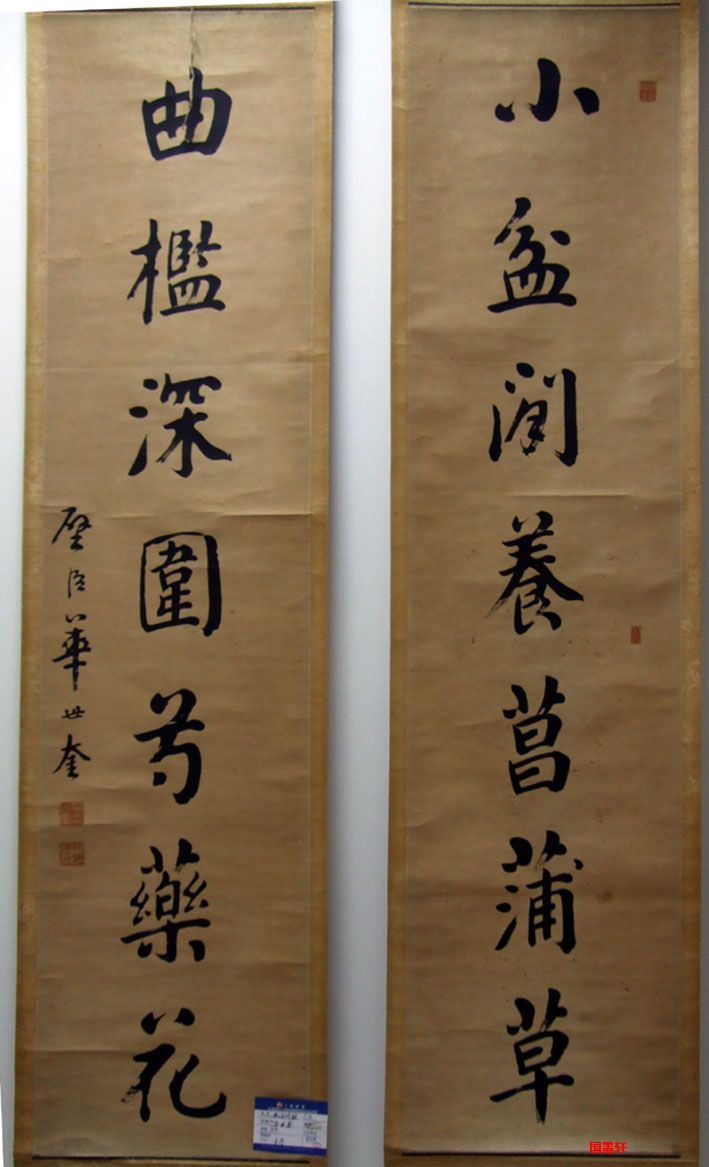 小盆閒養菖蒲草
曲檻深圍芍藥花
璧臣華世奎
国墨轩